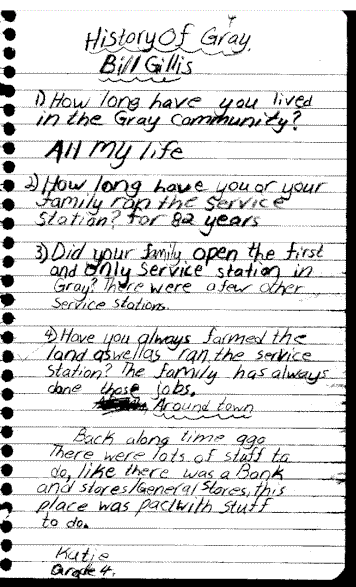 History Of Gray.
Bill Gillis
1) How long have you lived
in the Gray Community?
All my life
2) How long have you or your
family ran the Service
Station? for 82 years
3) Did your family open the first
and Only Service station in
Gray? There were a few other
Service Stations.
4) Have you always farmed the
land aswellas ran the service
Station? The family has always
done those jobs.
Around town
Back along time ago
There were lots of stuff to
do, like there was a Bank
and stores/General Stores, this
place was pactwith stuff
to do.
Katie
Grade 4.